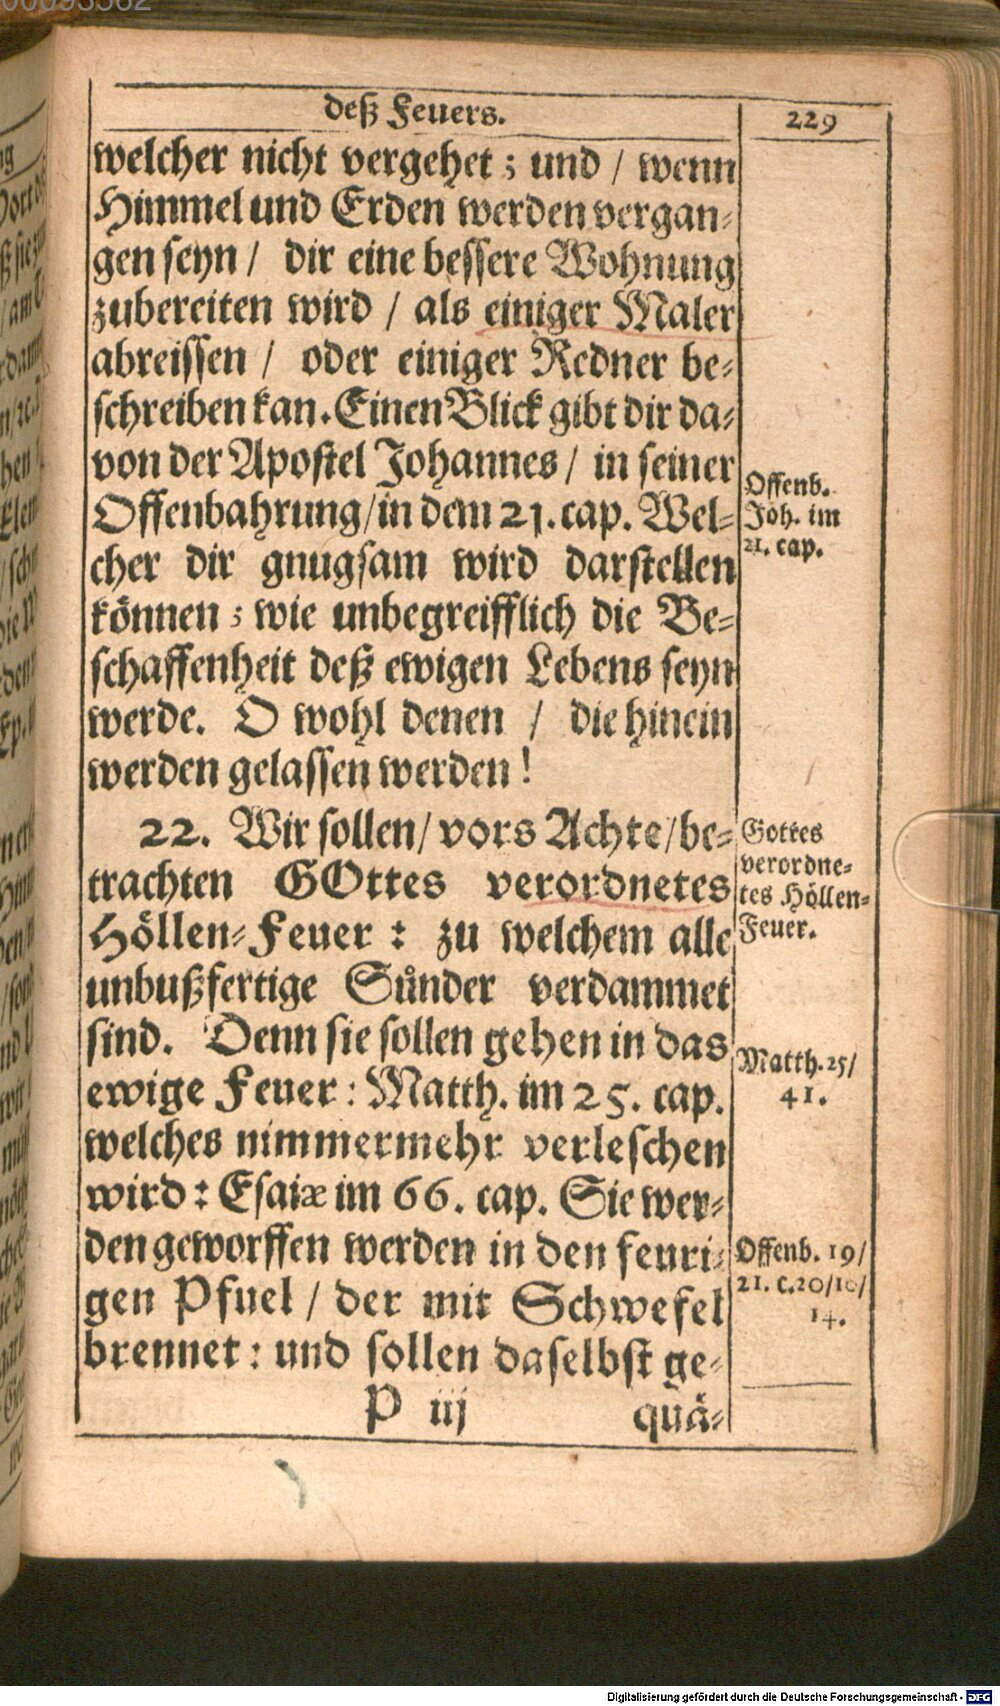 deß Feuers. 229
welcher nicht vergehet; und / wenn
Himmel und Erden werden vergan-
gen seyn / dir eine bessere Wohnung
zubereiten wird / als einiger Maler
abreissen / oder einiger Redner be-
schreiben kan. Einen Blick gibt dir da-
von der Apostel Johannes / in seiner
Offenbahrung / in dem 21. cap. Wel-
cher dir gnugsam wird darstellen
können; wie unbegreifflich die Be-
schaffenheit deß ewigen Lebens seyn
werde. O wohl denen / die hinein
werden gelassen werden!
Offenb.
Joh. im
21. cap.
22. Wir sollen / vors Achte / be-
trachten GOttes verordnetes
Höllen-Feuer: zu welchem alle
unbußfertige Sünder verdammet
sind. Denn sie sollen gehen in das
ewige Feuer: Matth. im 25. cap.
welches nimmermehr verleschen
wird: Esaiæ im 66. cap. Sie wer-
den geworffen werden in den feuri-
gen Pfuel / der mit Schwefel
brennet: und sollen daselbst ge-
Gottes
verordne-
tes Höllen-
Feuer.
Matth. 25/
41.
Offenb. 19/
21. c. 20/10/
14.
P iij quä-
Digitalisierung gefördert durch die Deutsche Forschungsgemeinschaft - DFG